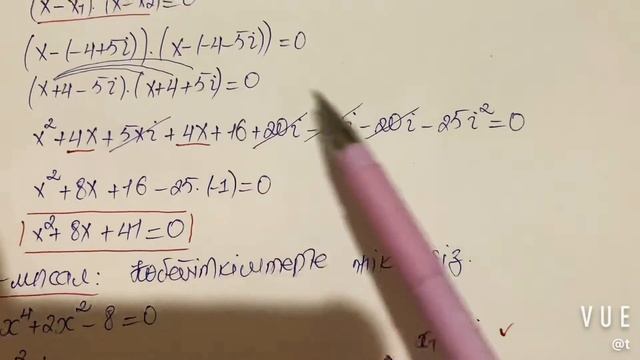 (x-x₁)·(x-x₂)=0
(x-(-4+5i))·(x-(-4-5i))=0
(x+4-5i)·(x+4+5i)=0
x²+4x+5xi+4x+16+20i-20i-25i²=0
x²+8x+16-25·(-1)=0
x²+8x+41=0
-мысал: Көбейткіштерге
x⁴+2x²-8=0
x₁ ✓
VUE
@t